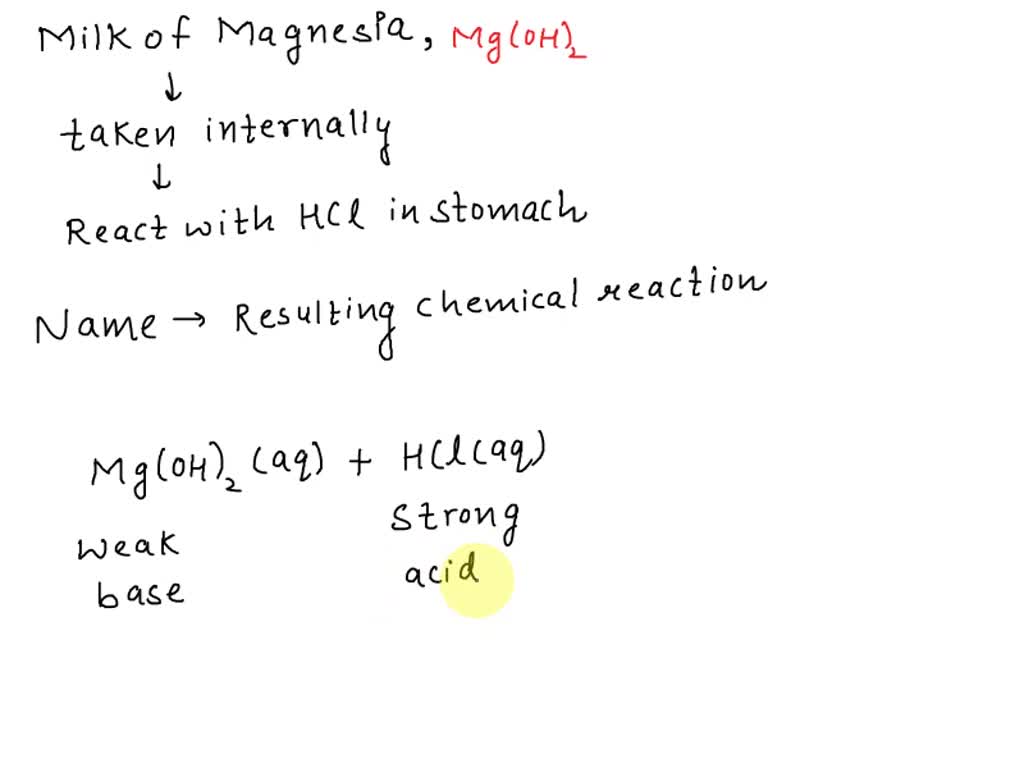 Milk of Magnesia, Mg(OH)₂
↓
taken internally
↓
React with HCl in stomach
Name → Resulting chemical reaction
Mg(OH)₂ (aq) + HCl(aq)
weak strong
base acid